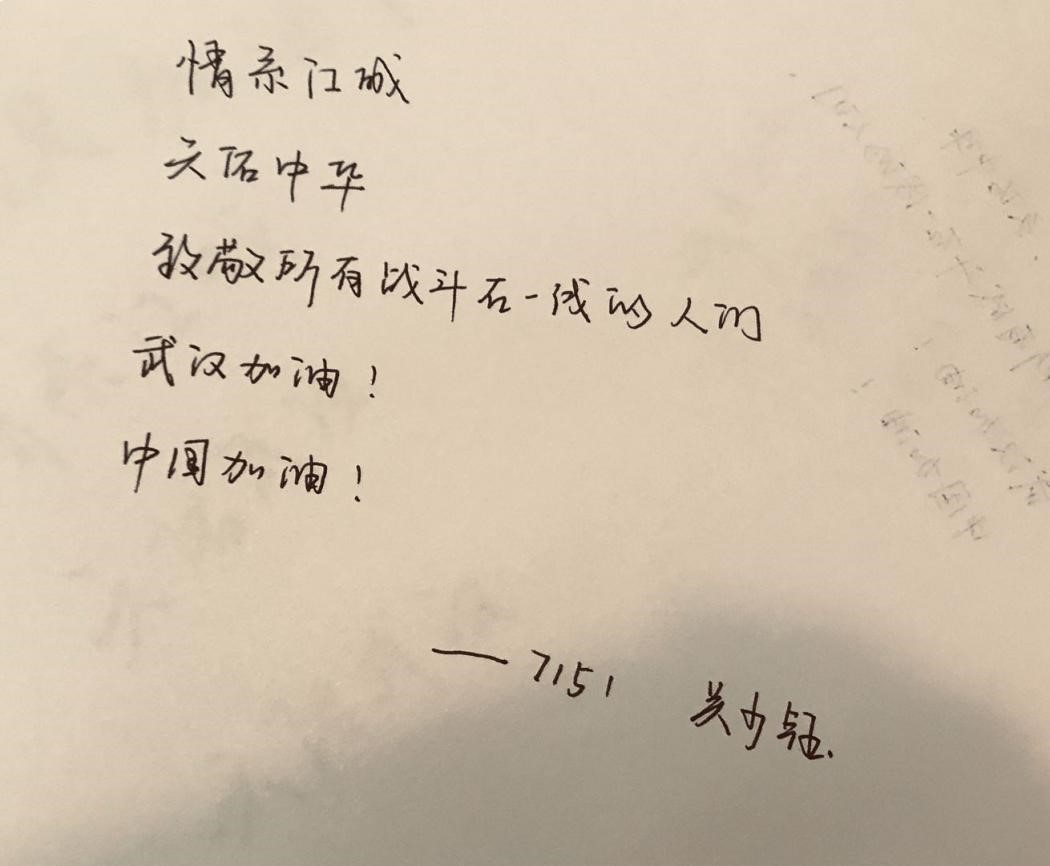 情系江城
天佑中华
致敬所有战斗在一线的人们
武汉加油！
中国加油！
——7151 吴少钰.